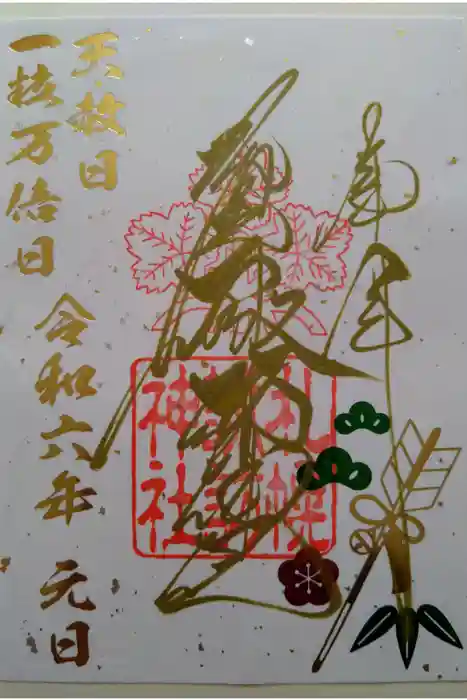 奉拝
札幌
諏訪
神社
天赦日
一粒万倍日
令和六年 元日